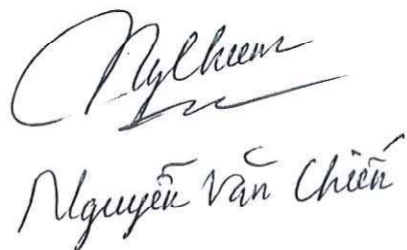 Nguyễn Văn Chiến